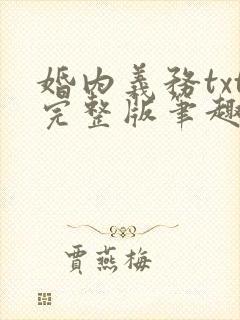 婚内義務txt
完整版筆趣
賈燕梅